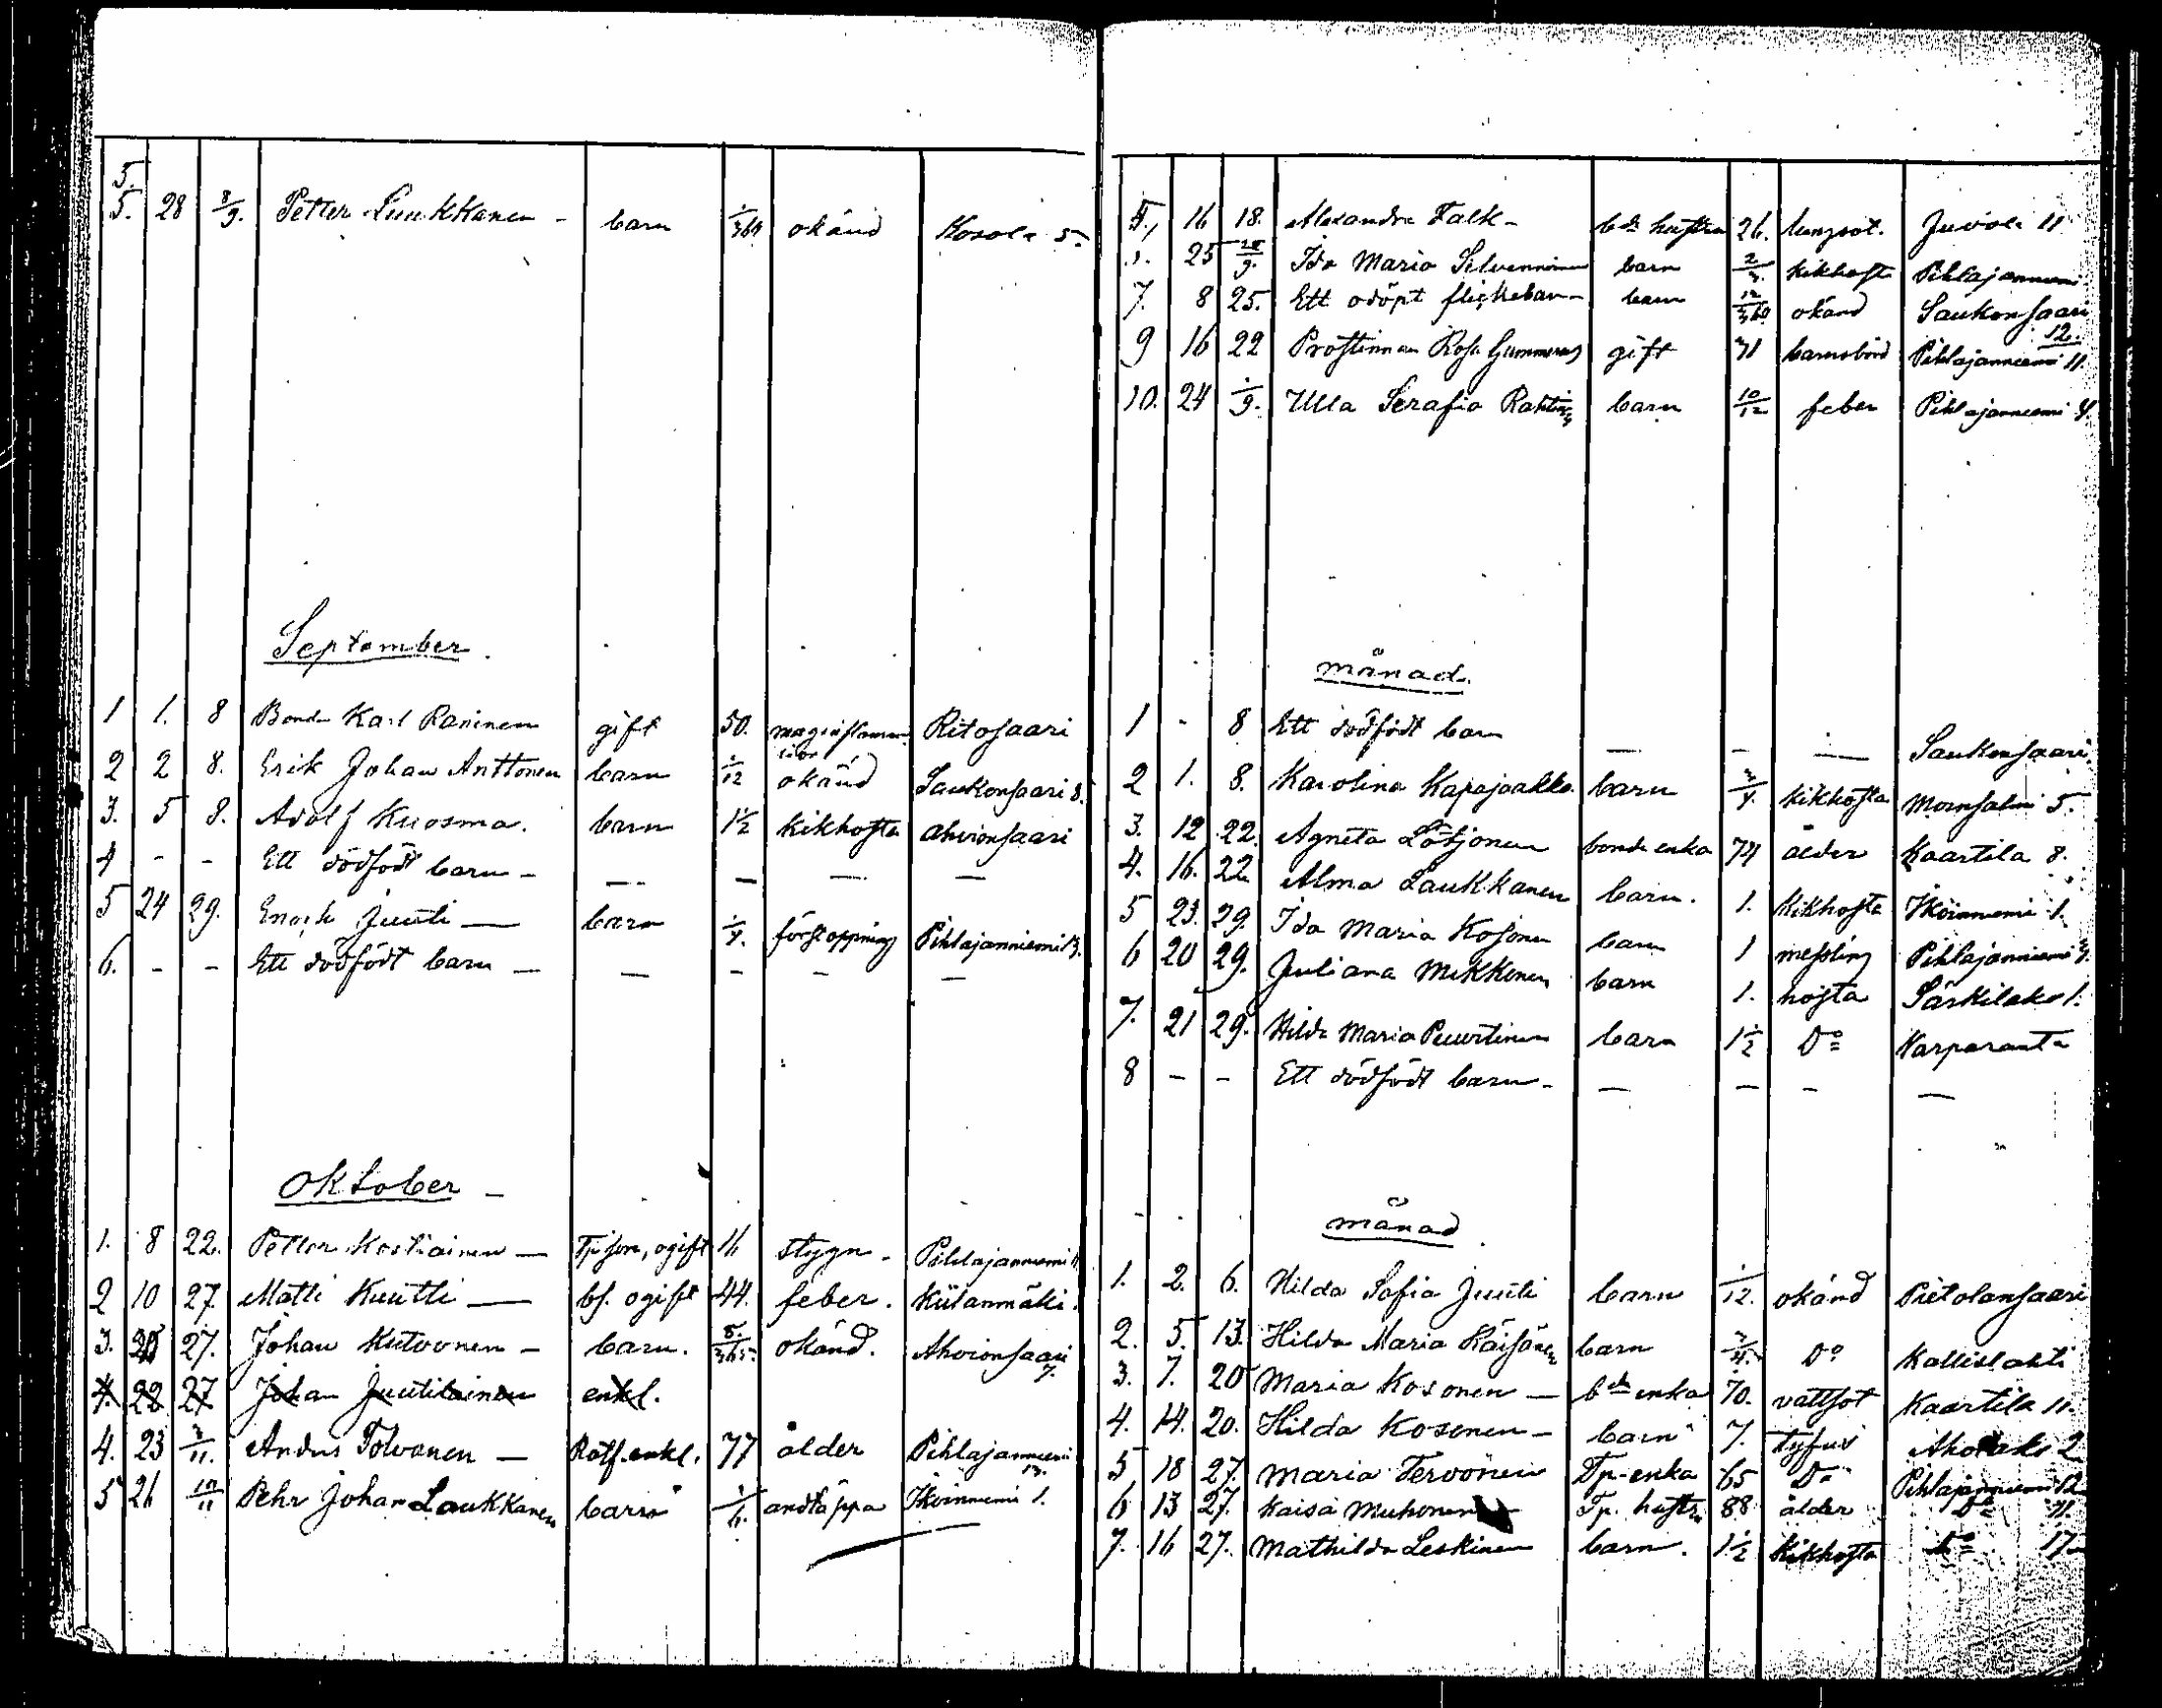 5.
5. 28 8/9. Petter Luukkanen - barn 1/360 okänd Kosola 5.
September.
1 1. 8 Bonde Karl Raninen gift 50. maginflamma-
tion Ritosaari
2 2 8. Erik Johan Anttonen barn 1/12 okänd Saukonsaari 8.
3. 5 8. Adolf Kuosma. barn 1 1/2 kikhosta Ahvionsaari
4 - - Ett dödfödt barn - — — — —
5 24 29. Enock Juuti — barn 1/4. förstoppning Pihlajanniemi 13.
6. - - Ett dödfödt barn — — - - —
Oktober —
1. 8 22. Petter Kostiainen — Tp son, ogift 16 stygn - Pihlajanniemi 11
2 10 27. Matti Kuutti — bs. ogift 44. feber. Kiilanmäki.
3. 20 27. Johan Kutvonen - barn. 8/365. okänd. Ahvionsaari
7.
4. 22 27 Johan Juutilainen enkl.
4. 23 3/11. Anders Tolvanen — Rotf. enkl. 77 ålder Pihlajanniemi
13.
5 26 10/11 Pehr Johan Laukkanen barn 1/6. andtäppa Ikoinniemi 1.
5., 16 18. Alexandra Falk - bde hustru 26. lungsot. Juvola 11
25 Ida Maria Silvennoinen barn 2/3. kikhosta Pihlajanniemi
7. 8 25. Ett odöpt flickebarn barn 12/360 okänd Saukonsaari
12.
9 16 22 Prostinnan Rosa Gummerus gift 31 barnsbörd Pihlajanniemi 11.
10. 24 1/9. Ulla Serafia barn 10/12 feber Pihlajanniemi 4.
månad.
1 - 8 Ett dödfödt barn — - — Saukonsaari
2 1. 8. Karolina Kapajaakko. barn 3/4. kikhosta Moinsalmi 5.
3. 12 22. Agneta Lötjönen bonde enka 74 ålder Kaartila 8.
4. 16. 22. Alma Laukkanen barn. 1. kikhosta Ikoinniemi 1.
5 23. 29. Ida Maria Kosonen barn 1 messling Pihlajanniemi
6 20 29. Juliana Mikkonen barn 1. hosta Särkilaks 1.
7. 21 29. Hilda Maria Puurtinen barn 1 1/2 Do Karparanta
8 - - Ett dödfödt barn - — — - —
månad
1. 2. 6. Hilda Sofia Juuti barn 1/12. okänd Pietolansaari
2. 5. 13. Hilda Maria Räisänen barn 3/4. Do Kallislahti
3. 7. 20 Maria Kosonen — bde enka 70. vattsot Kaartila 11.
4. 14. 20. Hilda Kosonen - barn 7. tyfus Aholaks 2
5 18 27. Maria Tervonen Tp-enka 65 Do Pihlajanniemi 12
6 13 27. Kaisa Muhonen Tp. hustru 88 ålder Do 11.
7. 16 27. Mathilda Leskinen barn. 1 1/2 kikhosta Do 17